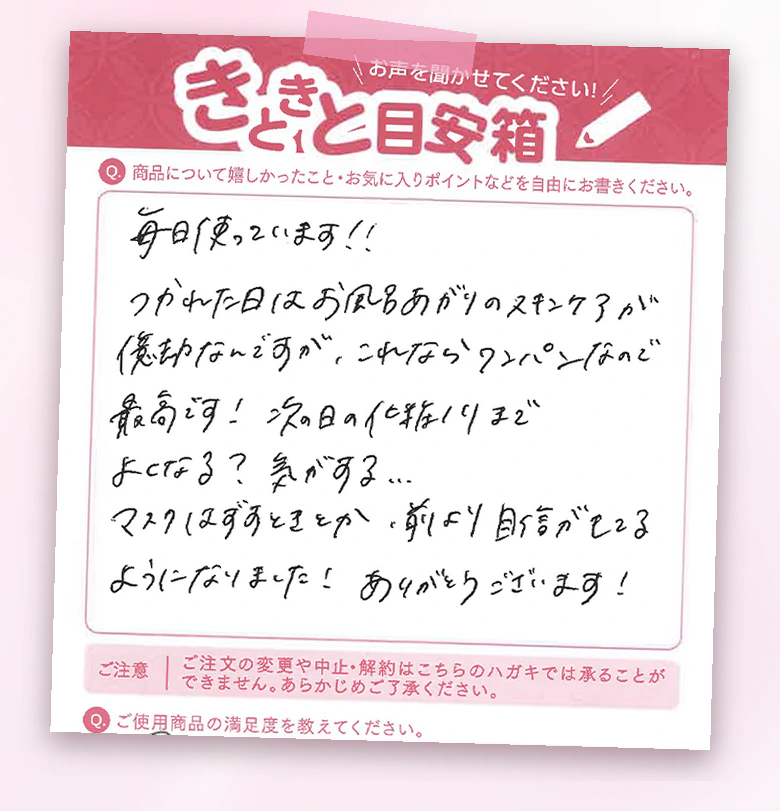 お声を聞かせてください!
きときと目安箱
Q. 商品について嬉しかったこと・お気に入りポイントなどを自由にお書きください。
毎日使っています!!
つかれた日はお風呂あがりのスキンケアが
億劫なんですが、これならワンパンなので
最高です! 次の日の化粧ノリまで
よくなる? 気がする...
マスクはずすときとか、前より自信がもてる
ようになりました! ありがとうございます!
ご注意
ご注文の変更や中止・解約はこちらのハガキでは承ることが
できません。あらかじめご了承ください。
Q. ご使用商品の満足度を教えてください。